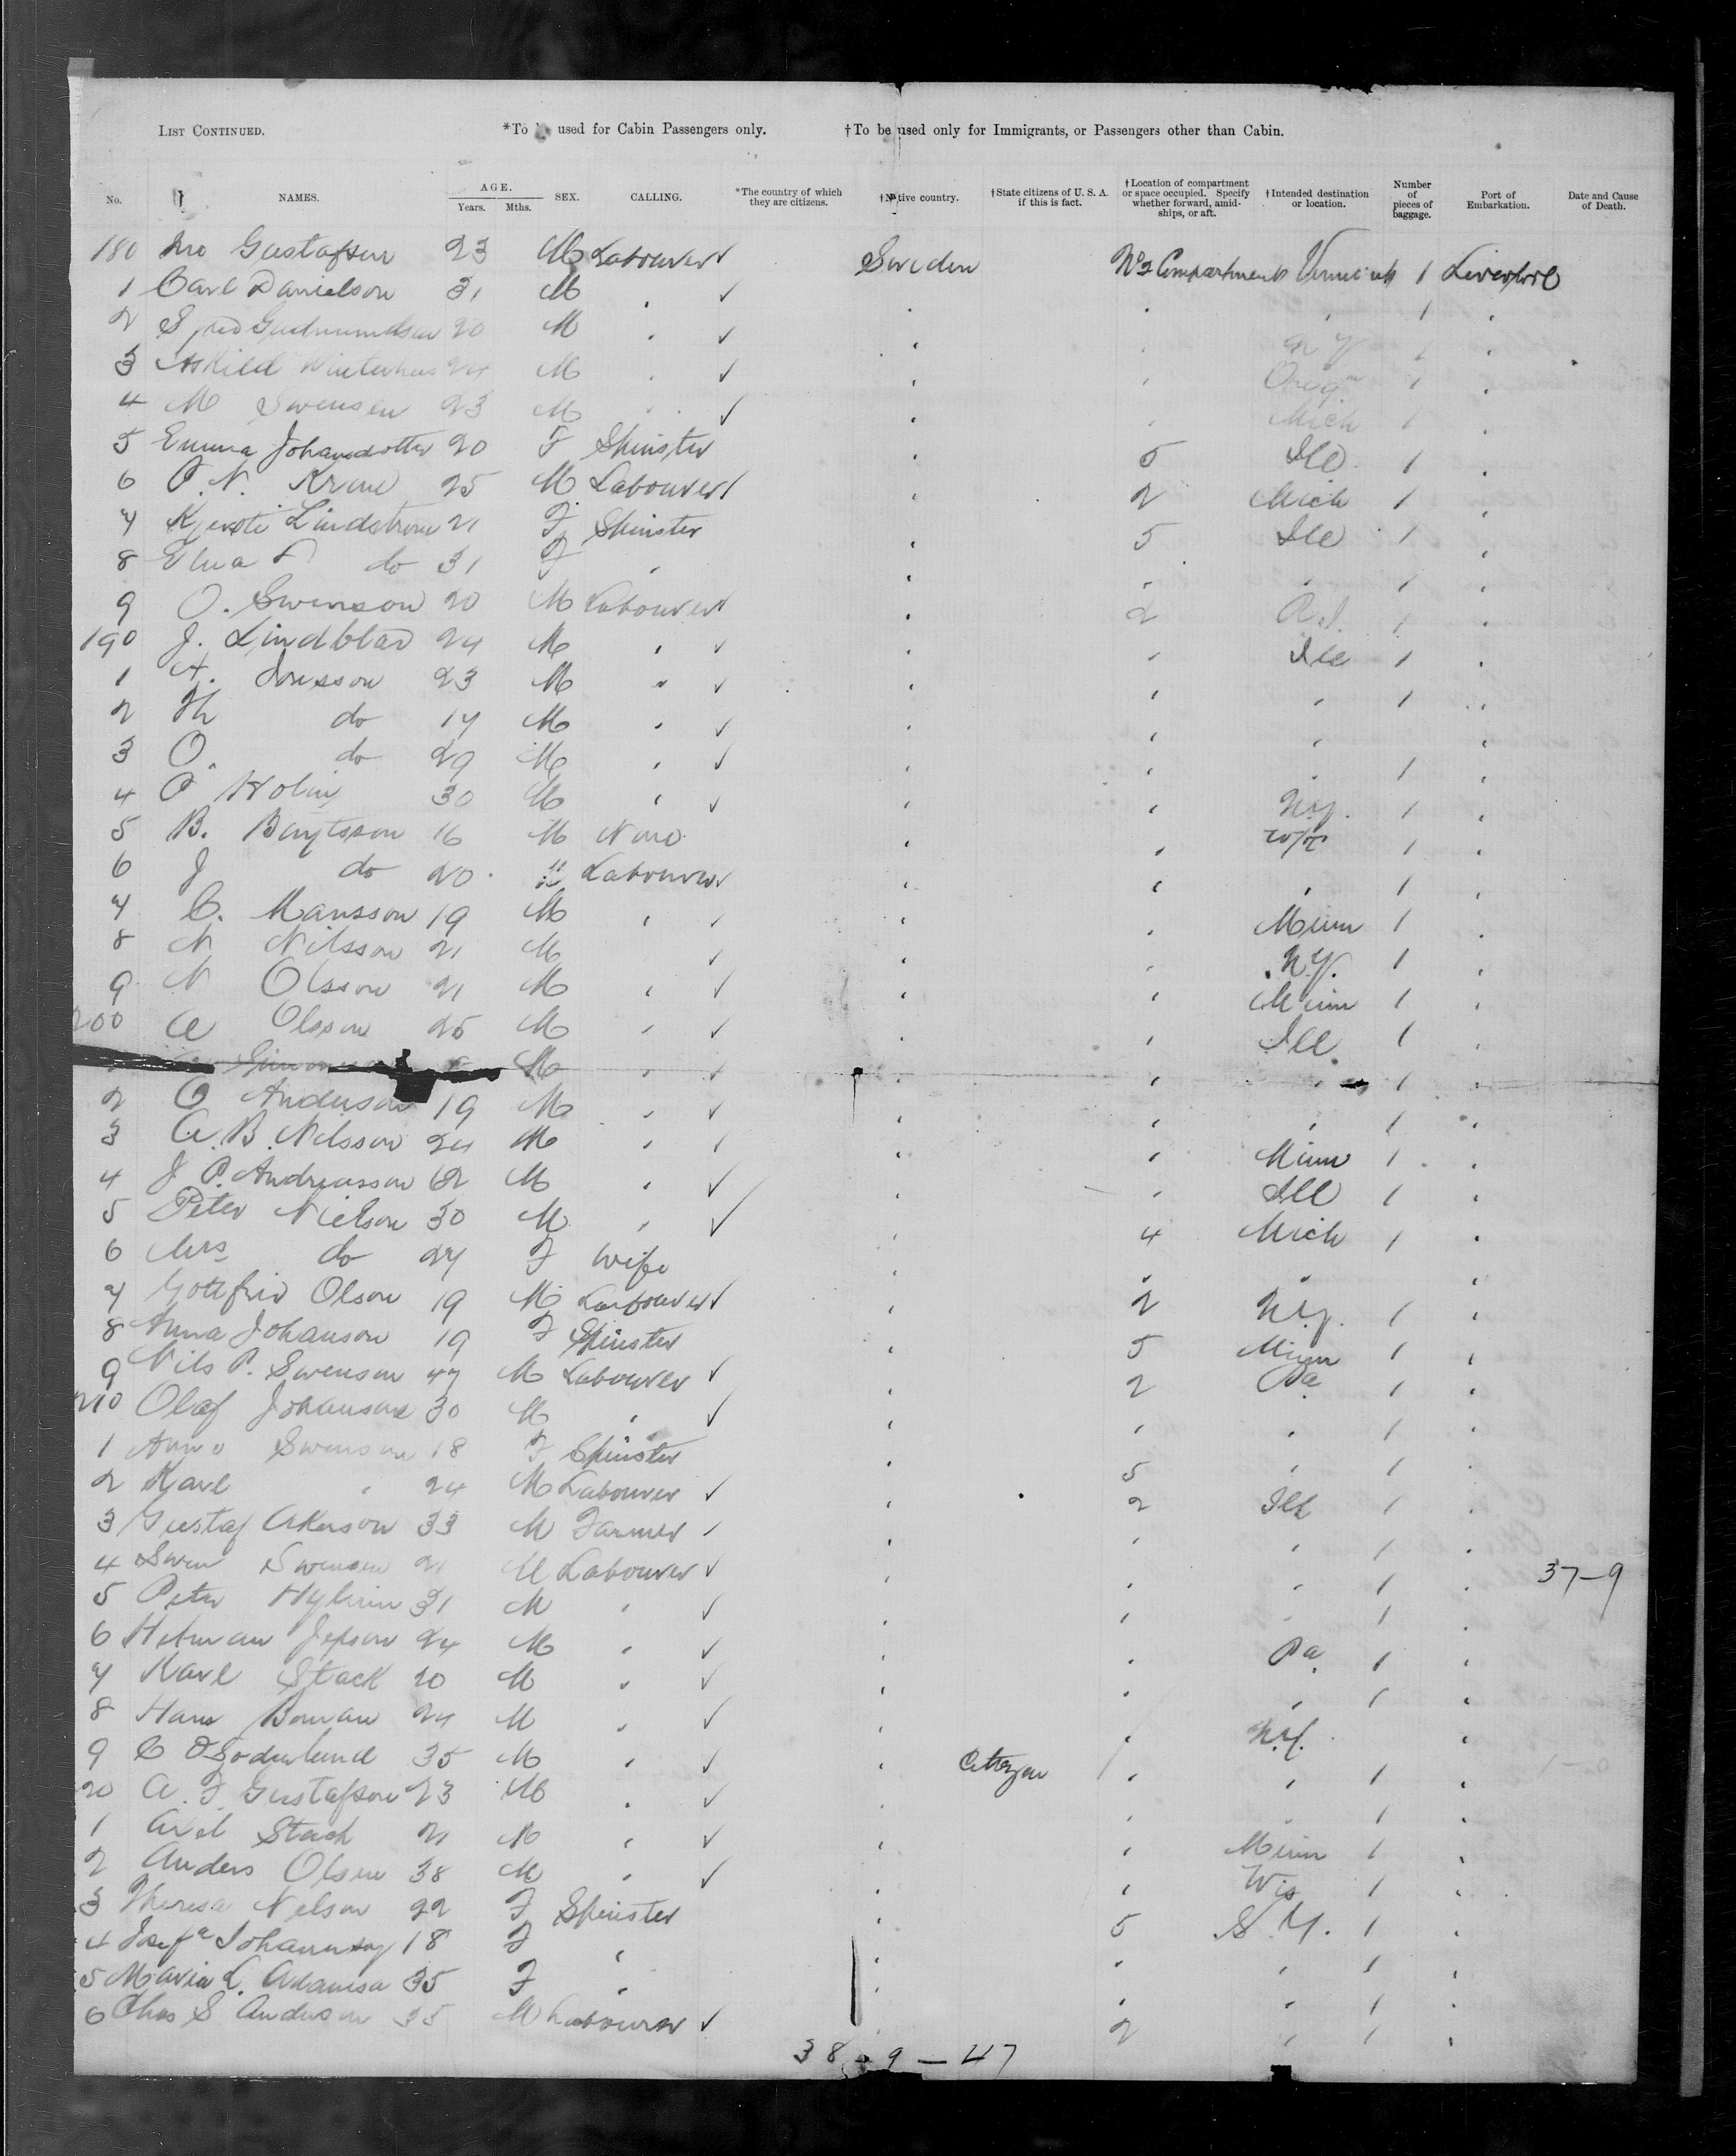 List Continued. *To be used for Cabin Passengers only. †To be used only for Immigrants, or Passengers other than Cabin.
No. NAMES. AGE. Years. Mths. SEX. CALLING. *The country of which they are citizens. †Native country. †State citizens of U. S. A. if this is fact. †Location of compartment or space occupied. Specify whether forward, amidships, or aft. †Intended destination or location. Number of pieces of baggage. Port of Embarkation. Date and Cause of Death.
180 Gustafson 23 M Labourer ✓ Sweden No 2 Compartment 1 Liverpool
1 Carl Danielson 31 M " ✓ " " " 1 "
2 20 M " ✓ " " N Y 1 "
3 24 M " ✓ " " Oregn 1 "
4 M Swensen 23 M " ✓ " " Mich 1 "
5 Emma Johansdotter 20 F Spinster " 5 Ill. 1 "
6 P. N. 25 M Labourer ✓ " 2 Mich 1 "
7 Lindstrom 21 F Spinster " 5 Ill 1 "
8 do 31 F " " " " 1 "
9 O. Swenson 20 M Labourer ✓ " 2 R.I. 1 "
190 J. Lindblad 24 M " ✓ " " Ill 1 "
1 23 M " ✓ " " " 1 "
2 Th do 17 M " ✓ " " " "
3 O. do 29 M " ✓ " " " 1 "
4 P Holm 30 M " ✓ " " N.Y. 1 "
5 B. 16 M None " " 1 "
6 J do 20 " Labourer ✓ " " " 1 "
7 C. Mansson 19 M " ✓ " " Minn 1 "
8 N Nilsson 21 M ✓ " " N.Y. 1 "
9 N Olsson 21 M " ✓ " " Minn 1 "
200 A Olsson 25 M " ✓ " " Ill. 1 "
M " ✓ " " " 1 "
2 O Anderson 19 M " ✓ " " " 1 "
3 A. B. Nilsson 24 M " ✓ " " Minn 1 "
4 J P. Andreasson 62 M " ✓ " " Ill 1 "
5 Peter Nielson 30 M " ✓ " 4 Mich 1 "
6 Mrs do 27 F Wife " " " "
7 Gottfrid Olson 19 M Labourer ✓ " 2 N.Y. 1 "
8 Anna Johanson 19 F Spinster " 5 Minn 1 "
9 Nils P. Swenson 47 M Labourer ✓ " 2 Pa 1 "
210 Olaf Johanson 30 M " ✓ " " " 1 "
1 Swenson 18 F Spinster " 5 " 1 "
2 Karl " 24 M Labourer ✓ " 2 Ill 1 "
3 Gustaf Akerson 33 M Farmer ✓ " " " 1 "
4 Swen Swensen 21 M Labourer ✓ " " " 1 " 37-9
5 Peter 31 M " ✓ " " " 1 "
6 Herman Jepson 24 M " ✓ " " Pa. 1 "
7 Karl Stack 20 M " ✓ " " " 1 "
8 Hans Boman 24 M " ✓ " " N.Y. "
9 C O Soderlund 35 M " ✓ " Citizen " " 1 "
20 A. F. Gustafson 23 M " ✓ " " " 1 "
1 Axel Stach 21 M " ✓ " " Minn 1 "
2 Anders Olsen 38 M " ✓ " " Wis 1 "
3 Theresa Nelson 22 F Spinster " 5 N.Y. 1 "
4 18 F " " " " 1 "
5 Maria L. 35 F " " " " 1 "
6 Chas S Anderson 35 M Labourer ✓ " 2 " 1 "
38-9-47